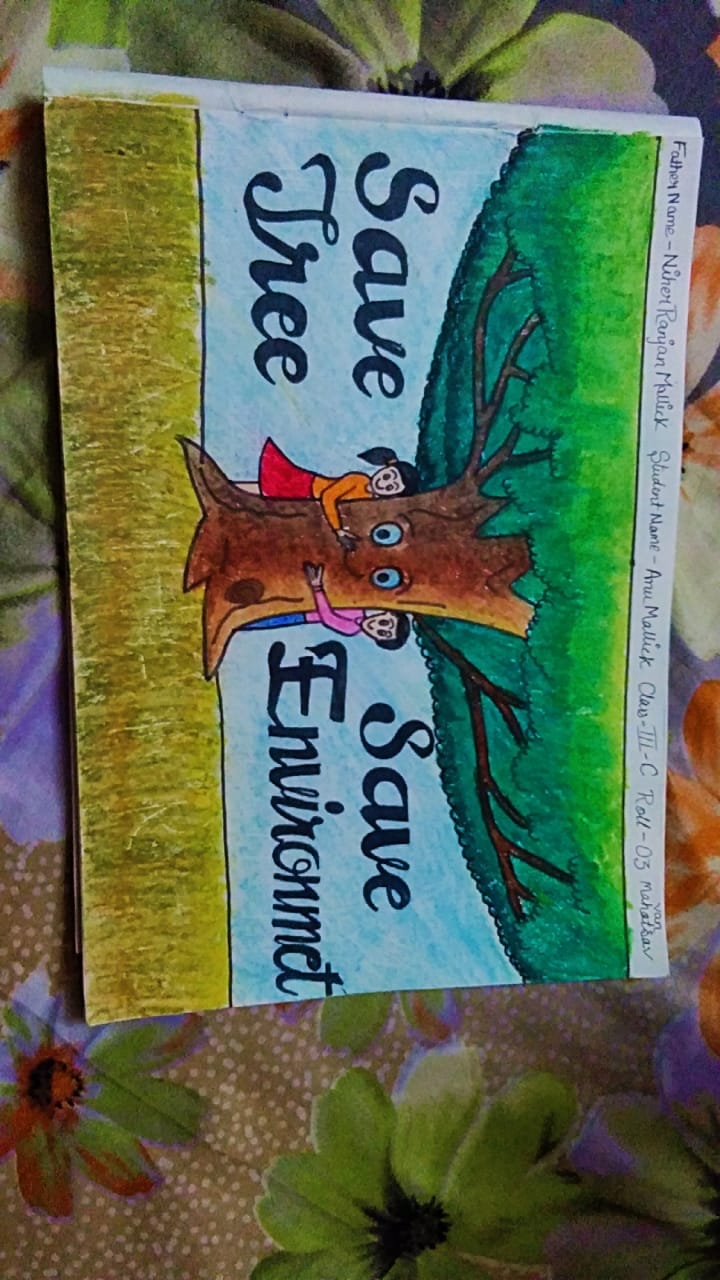 Father Name - Niher Ranjan Mallick Student Name - Anu Mallick Class - III - C Roll - 03 van Mahatsav
Save
Tree
Save
Environmet